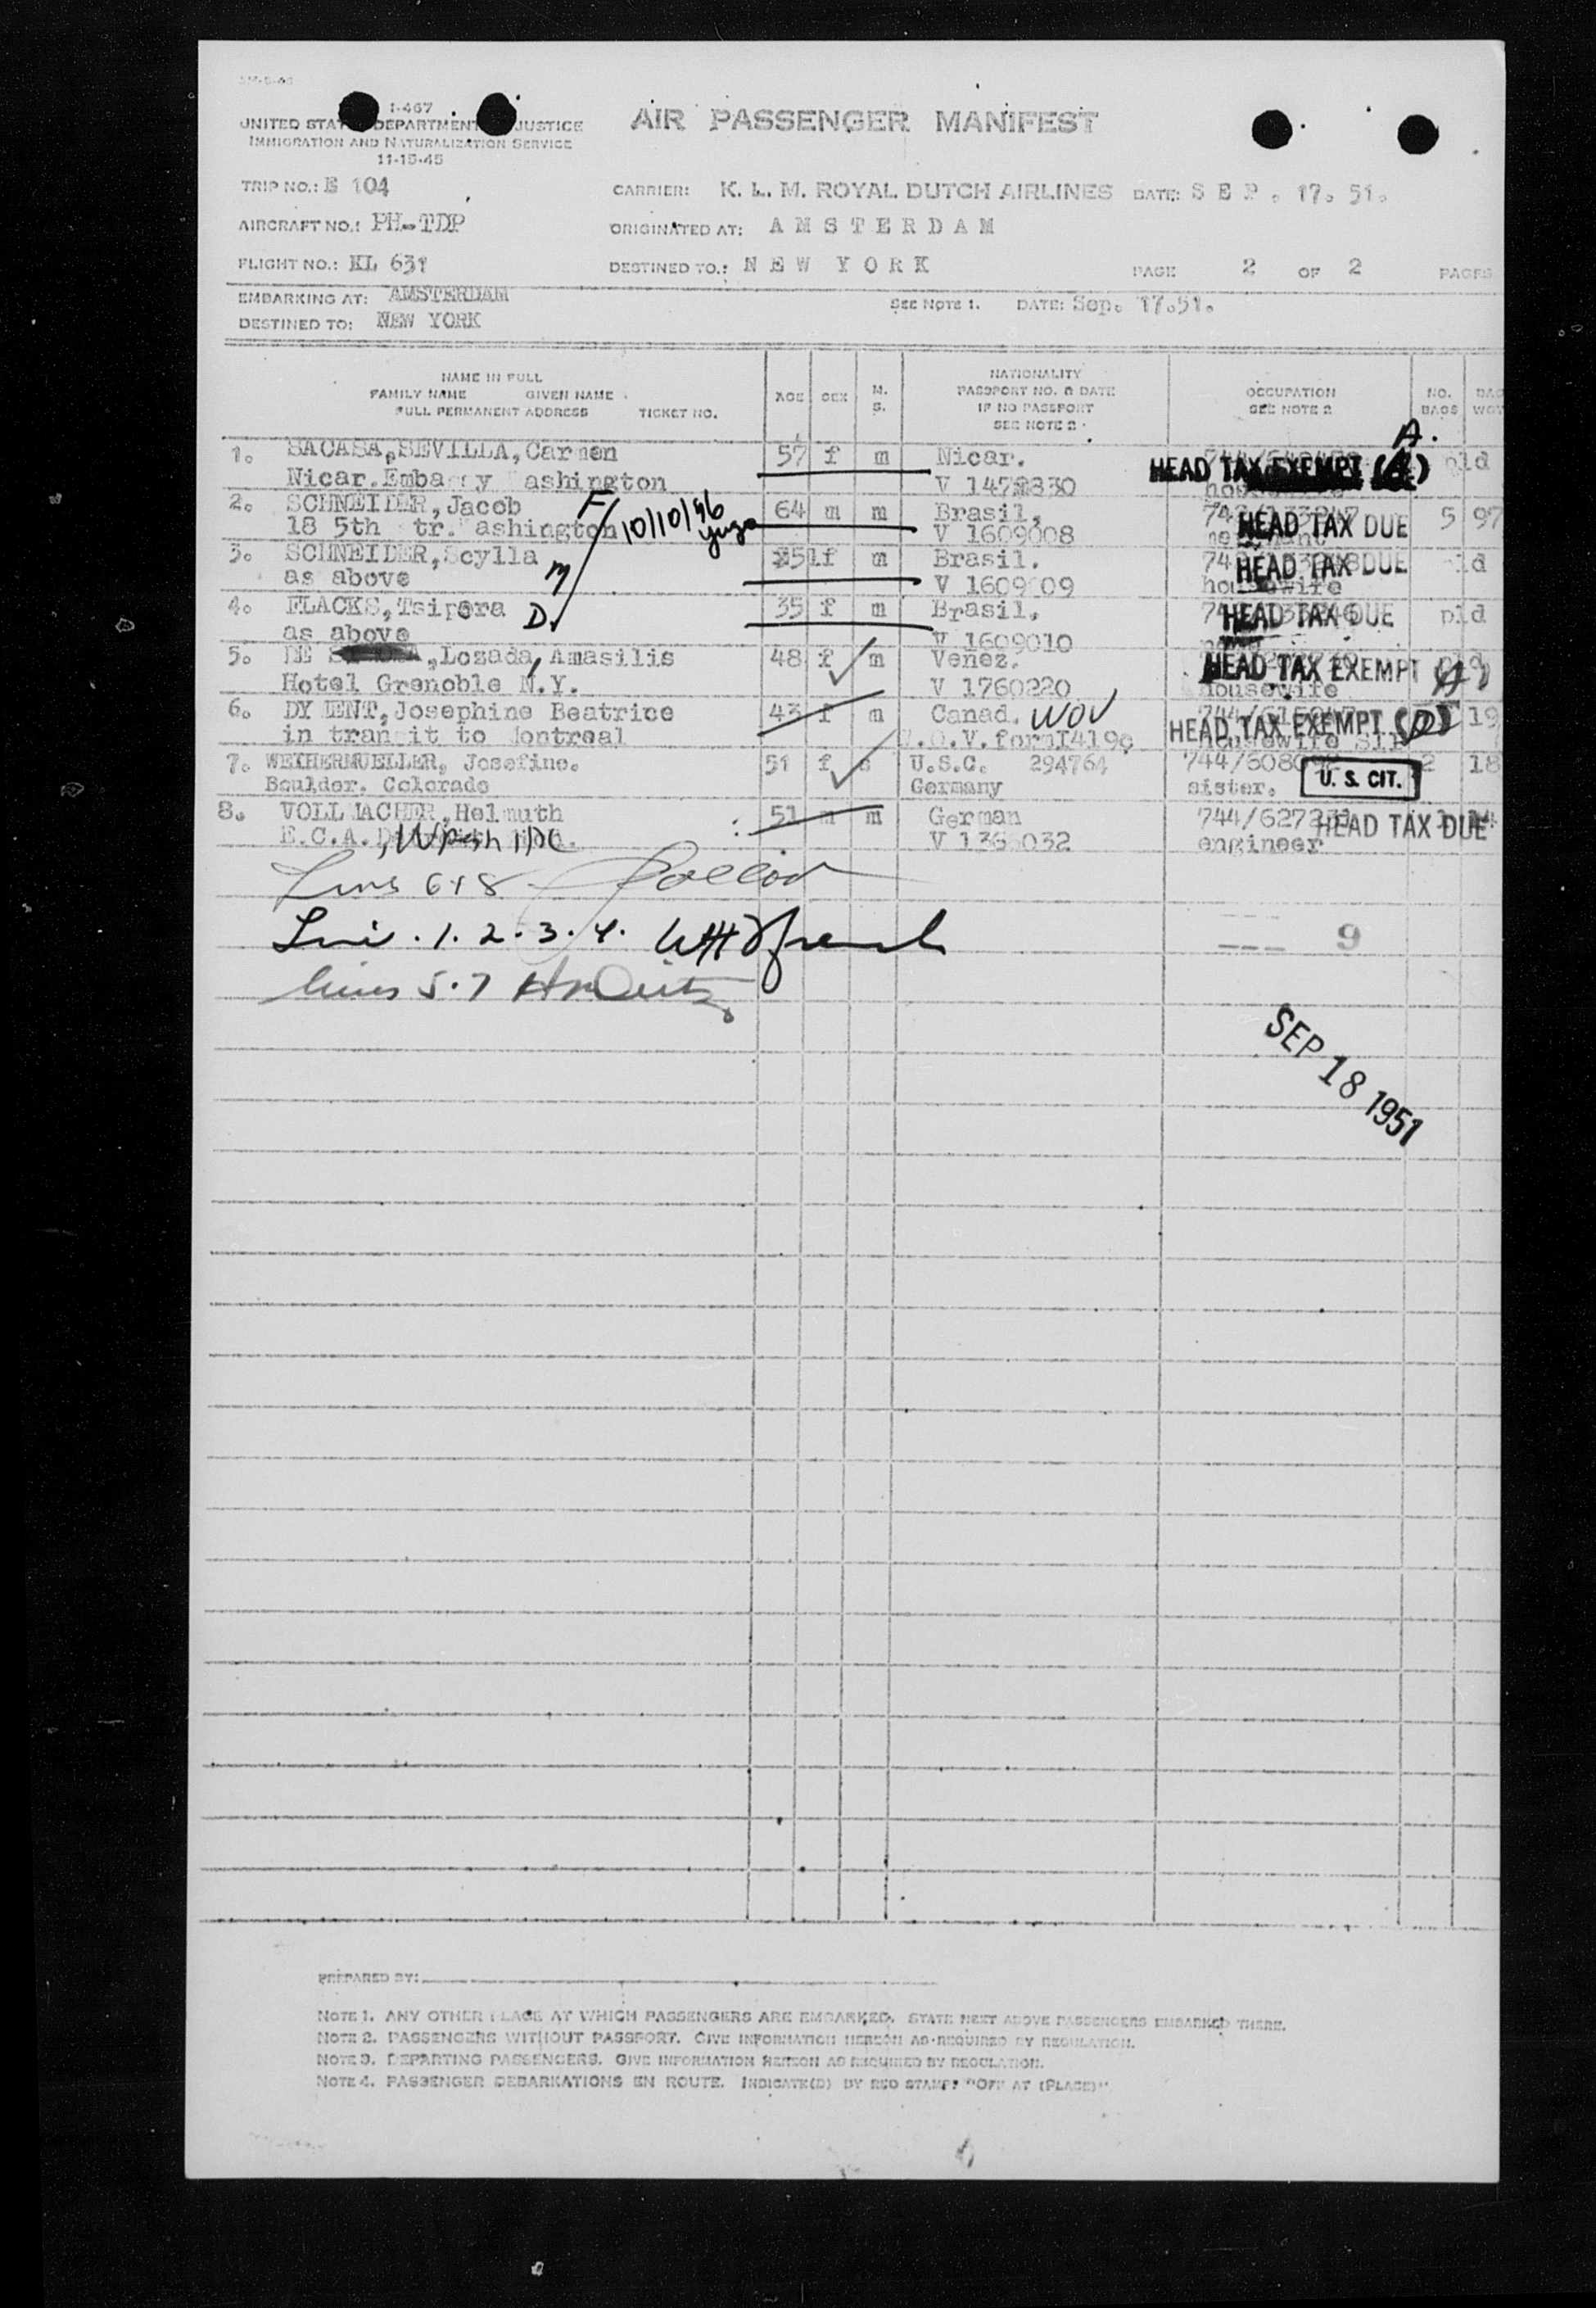 I-467
UNITED STATES DEPARTMENT JUSTICE
IMMIGRATION AND NATURALIZATION SERVICE
11-15-45
AIR PASSENGER MANIFEST
TRIP NO.: E 104
CARRIER: K. L. M. ROYAL DUTCH AIRLINES DATE: SEP. 17. 51.
AIRCRAFT NO.: PH-TDP
ORIGINATED AT: AMSTERDAM
FLIGHT NO.: KL 631
DESTINED TO.: NEW YORK
PAGE 2 OF 2 PAGES
EMBARKING AT: AMSTERDAM
SEE NOTE 1. DATE: Sep. 17.51.
DESTINED TO: NEW YORK
NAME IN FULL
FAMILY NAME GIVEN NAME
FULL PERMANENT ADDRESS TICKET NO.
AGE SEX M. S.
NATIONALITY
PASSPORT NO. & DATE
IF NO PASSPORT
SEE NOTE 2
OCCUPATION
SEE NOTE 2
NO. BAGS
BAG WGT
A.
1. SACASA, SEVILLA, Carmen 57 f m Nicar. pld
Nicar. Embassy ashington V HEAD TAX EXEMPT (A)
2. SCHNEIDER, Jacob F 10/10/96 64 m m Brasil. 5 97
18 5th tr. ashington V 1609008 HEAD TAX DUE
3. SCHNEIDER, Scylla f m Brasil. HEAD TAX DUE
as above M V 1609009 housewife
4. FLACKS, Tsipora 35 f m Brasil. HEAD TAX DUE pld
as above D V 1609010
5. DE , Lozada, Amasilis 48 f m Venez. HEAD TAX EXEMPT (A)
Hotel Grenoble N.Y. V 1760220 housewife
6. DY ENT, Josephine Beatrice 43 f m Canad. WOV 19
in transit to Montreal .O.V. form I419c HEAD TAX EXEMPT (D) housewife
7. WEIHERMUELLER, Josefine. 51 f s U.S.C. 294764 744/608 2 18
Boulder. Colorado Germany sister. U. S. CIT.
8. VOLLMACHER, Helmuth 51 m m German 744/627 HEAD TAX DUE
E.C.A. Wash DC V engineer
Lines 6+8
1. 2. 3. 4.
Lines 5.7
--- 9
SEP 18 1951
PREPARED BY:
NOTE 1. ANY OTHER PLACE AT WHICH PASSENGERS ARE EMBARKED. STATE NEXT ABOVE PASSENGERS EMBARKED THERE.
NOTE 2. PASSENGERS WITHOUT PASSPORT. GIVE INFORMATION HEREON AS REQUIRED BY REGULATION.
NOTE 3. DEPARTING PASSENGERS. GIVE INFORMATION HEREON AS REQUIRED BY REGULATION.
NOTE 4. PASSENGER DEBARKATIONS EN ROUTE. INDICATE(D) BY RED STAMP: "OFF AT (PLACE)"